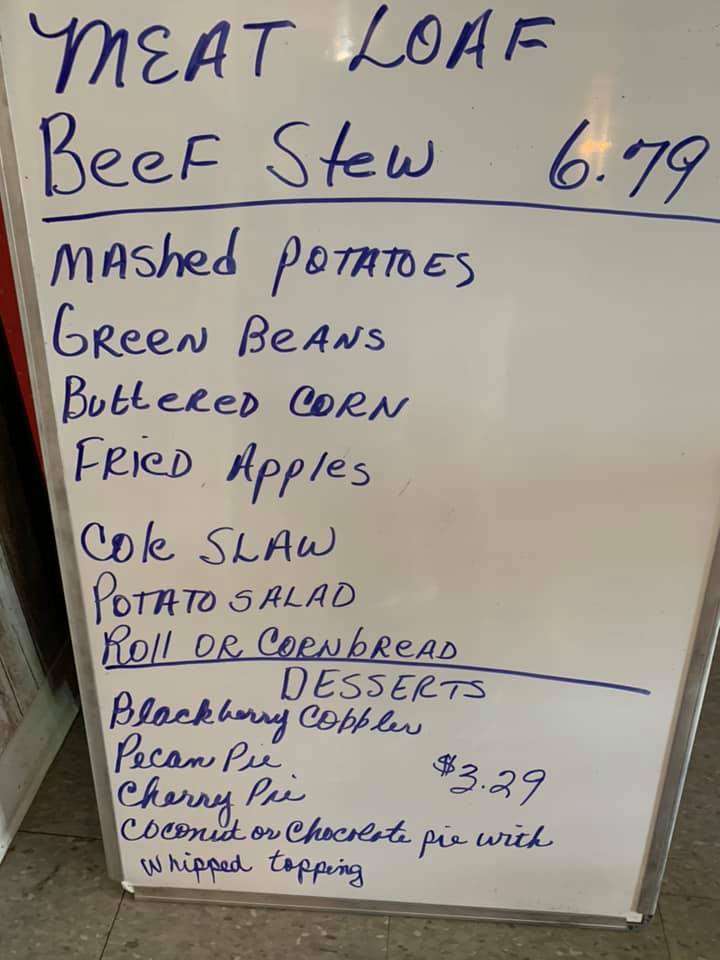 MEAT LOAF
BeeF Stew 6.79
MAshed POTATOES
GReeN BeANS
ButteRED CORN
FRIED Apples
Cole SLAW
POTATO SALAD
Roll OR CORNbREAD
DESSERTS
Blackberry Cobbler
Pecan Pie
$3.29
Cherry Pie
Coconut or Chocolate pie with
whipped topping